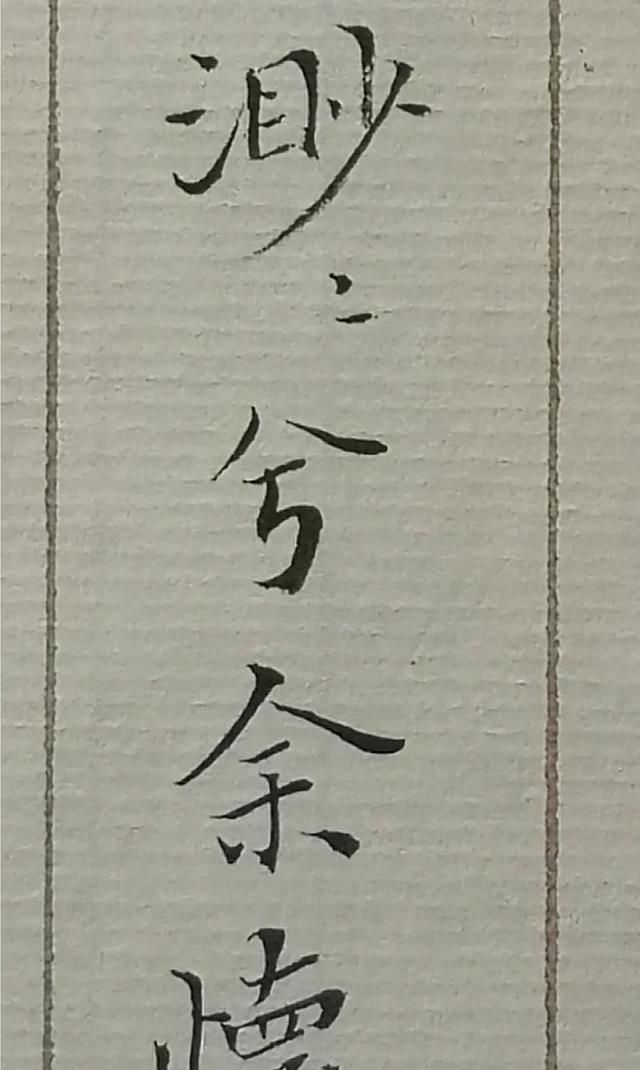 渺〻兮余懷